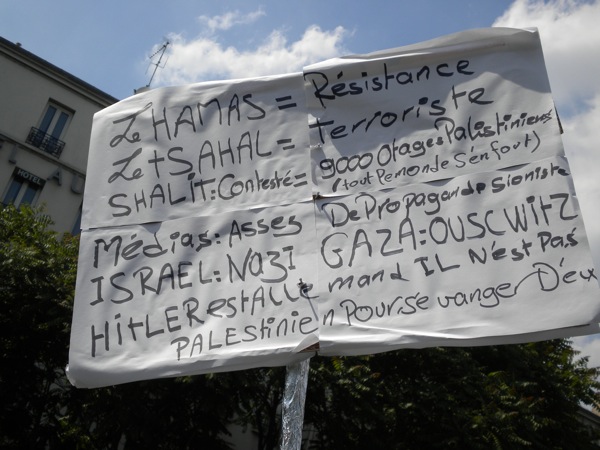 Le HAMAS = Résistance
Le TSAHAL = Terroriste
SHALIT: Contesté = 9000 Otages Palestiniens
(tout le monde S'en fout)
Médias: Asses De Propagande Sioniste
ISRAEL: NaZI GAZA: OUSCWITZ
HITLER est Allemand IL N'est Pas
PALESTINIEN Pour se vanger D'eux
HOTEL